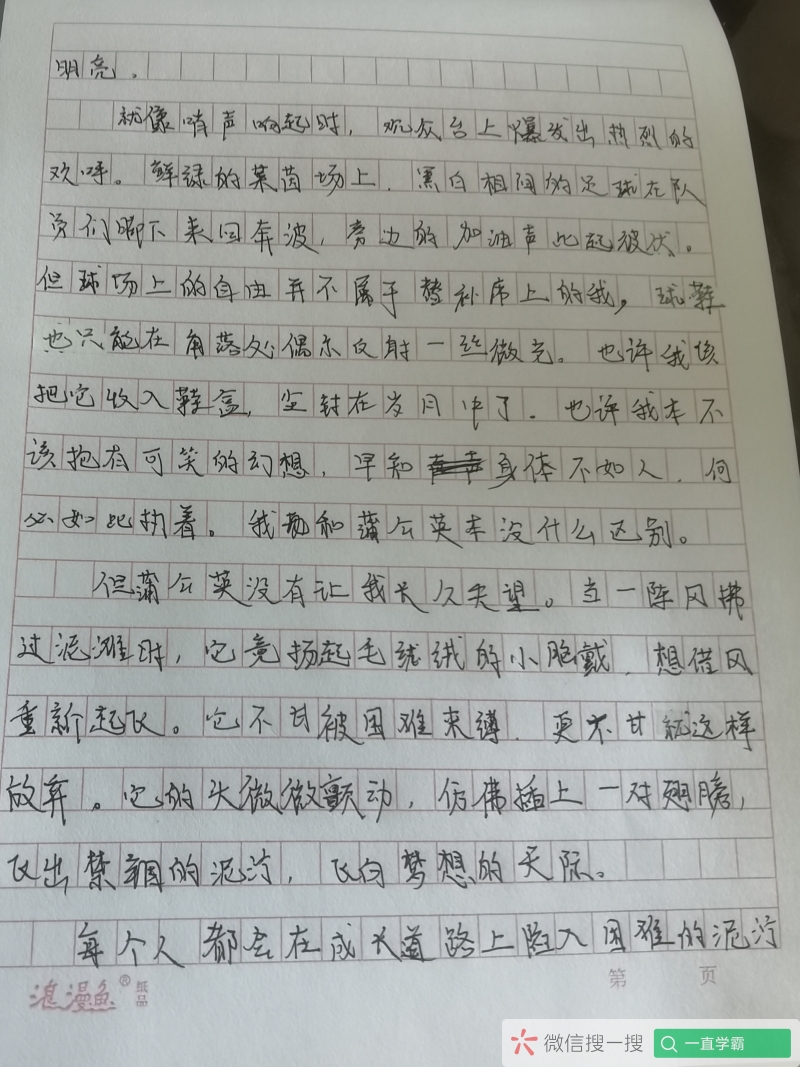 明亮。
就像哨声响起时，观众台上爆发出热烈的
欢呼。鲜绿的莱茵场上，黑白相间的足球在队
员们脚下来回奔波，旁边的加油声此起彼伏。
但球场上的自由并不属于替补席上的我，球鞋
也只能在角落处偶尔反射一丝微光。也许我该
把它收入鞋盒，尘封在岁月中了。也许我本不
该抱有可笑的幻想，早知身体不如人，何
必如此执着。我和蒲公英本没什么区别。
但蒲公英没有让我长久失望。当一阵风拂
过泥滩时，它竟扬起毛绒绒的小脑戴，想借风
重新起飞。它不甘被困难束缚，更不甘就这样
放弃。它的头微微颤动，仿佛插上一对翅膀，
飞出禁锢的泥泞，飞向梦想的天际。
每个人都会在成长道路上陷入困难的泥泞
浪漫鱼®纸品
第 页
微信搜一搜 一直学霸